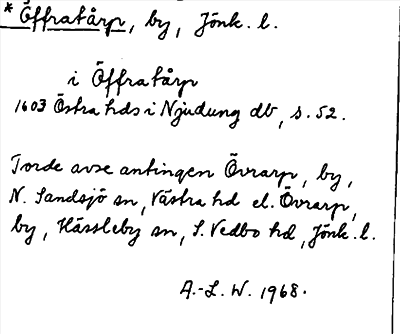 * Öffratårp, by, Jönk. l.
i Öffratårp
1603 Östra hds i Njudung db, s. 52.
Torde avse antingen Övrarp, by,
N. Sandsjö sn, Västra hd el. Övrarp,
by, Hässleby sn, S. Vedbo hd, Jönk. l.
A.-L. W. 1968.